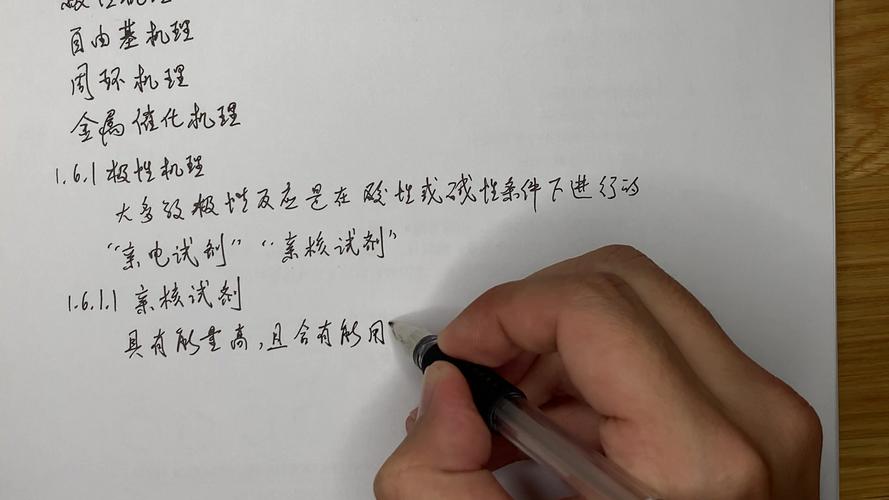 极性机理
自由基机理
周环机理
金属催化机理
1.6.1 极性机理
大多数极性反应是在酸性或碱性条件下进行的
“亲电试剂” “亲核试剂”
1.6.1.1 亲核试剂
具有能量高,且含有能用